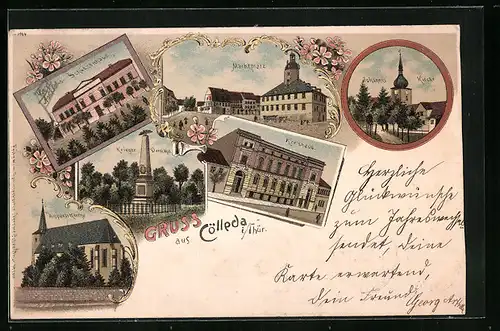 Schützenhaus
Marktplatz
Johannis Kirche
Krieger Denkmal
GRUSS
aus Cölleda
i/Thür.
Herzliche
Glückwünsche
zum Jahreswechsel
sendet, deine
Karte erwartend,
Dein Freund
Georg